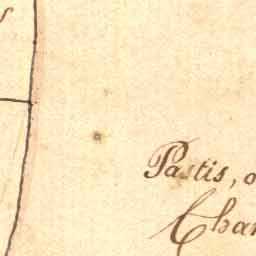 Pastis, o
Char